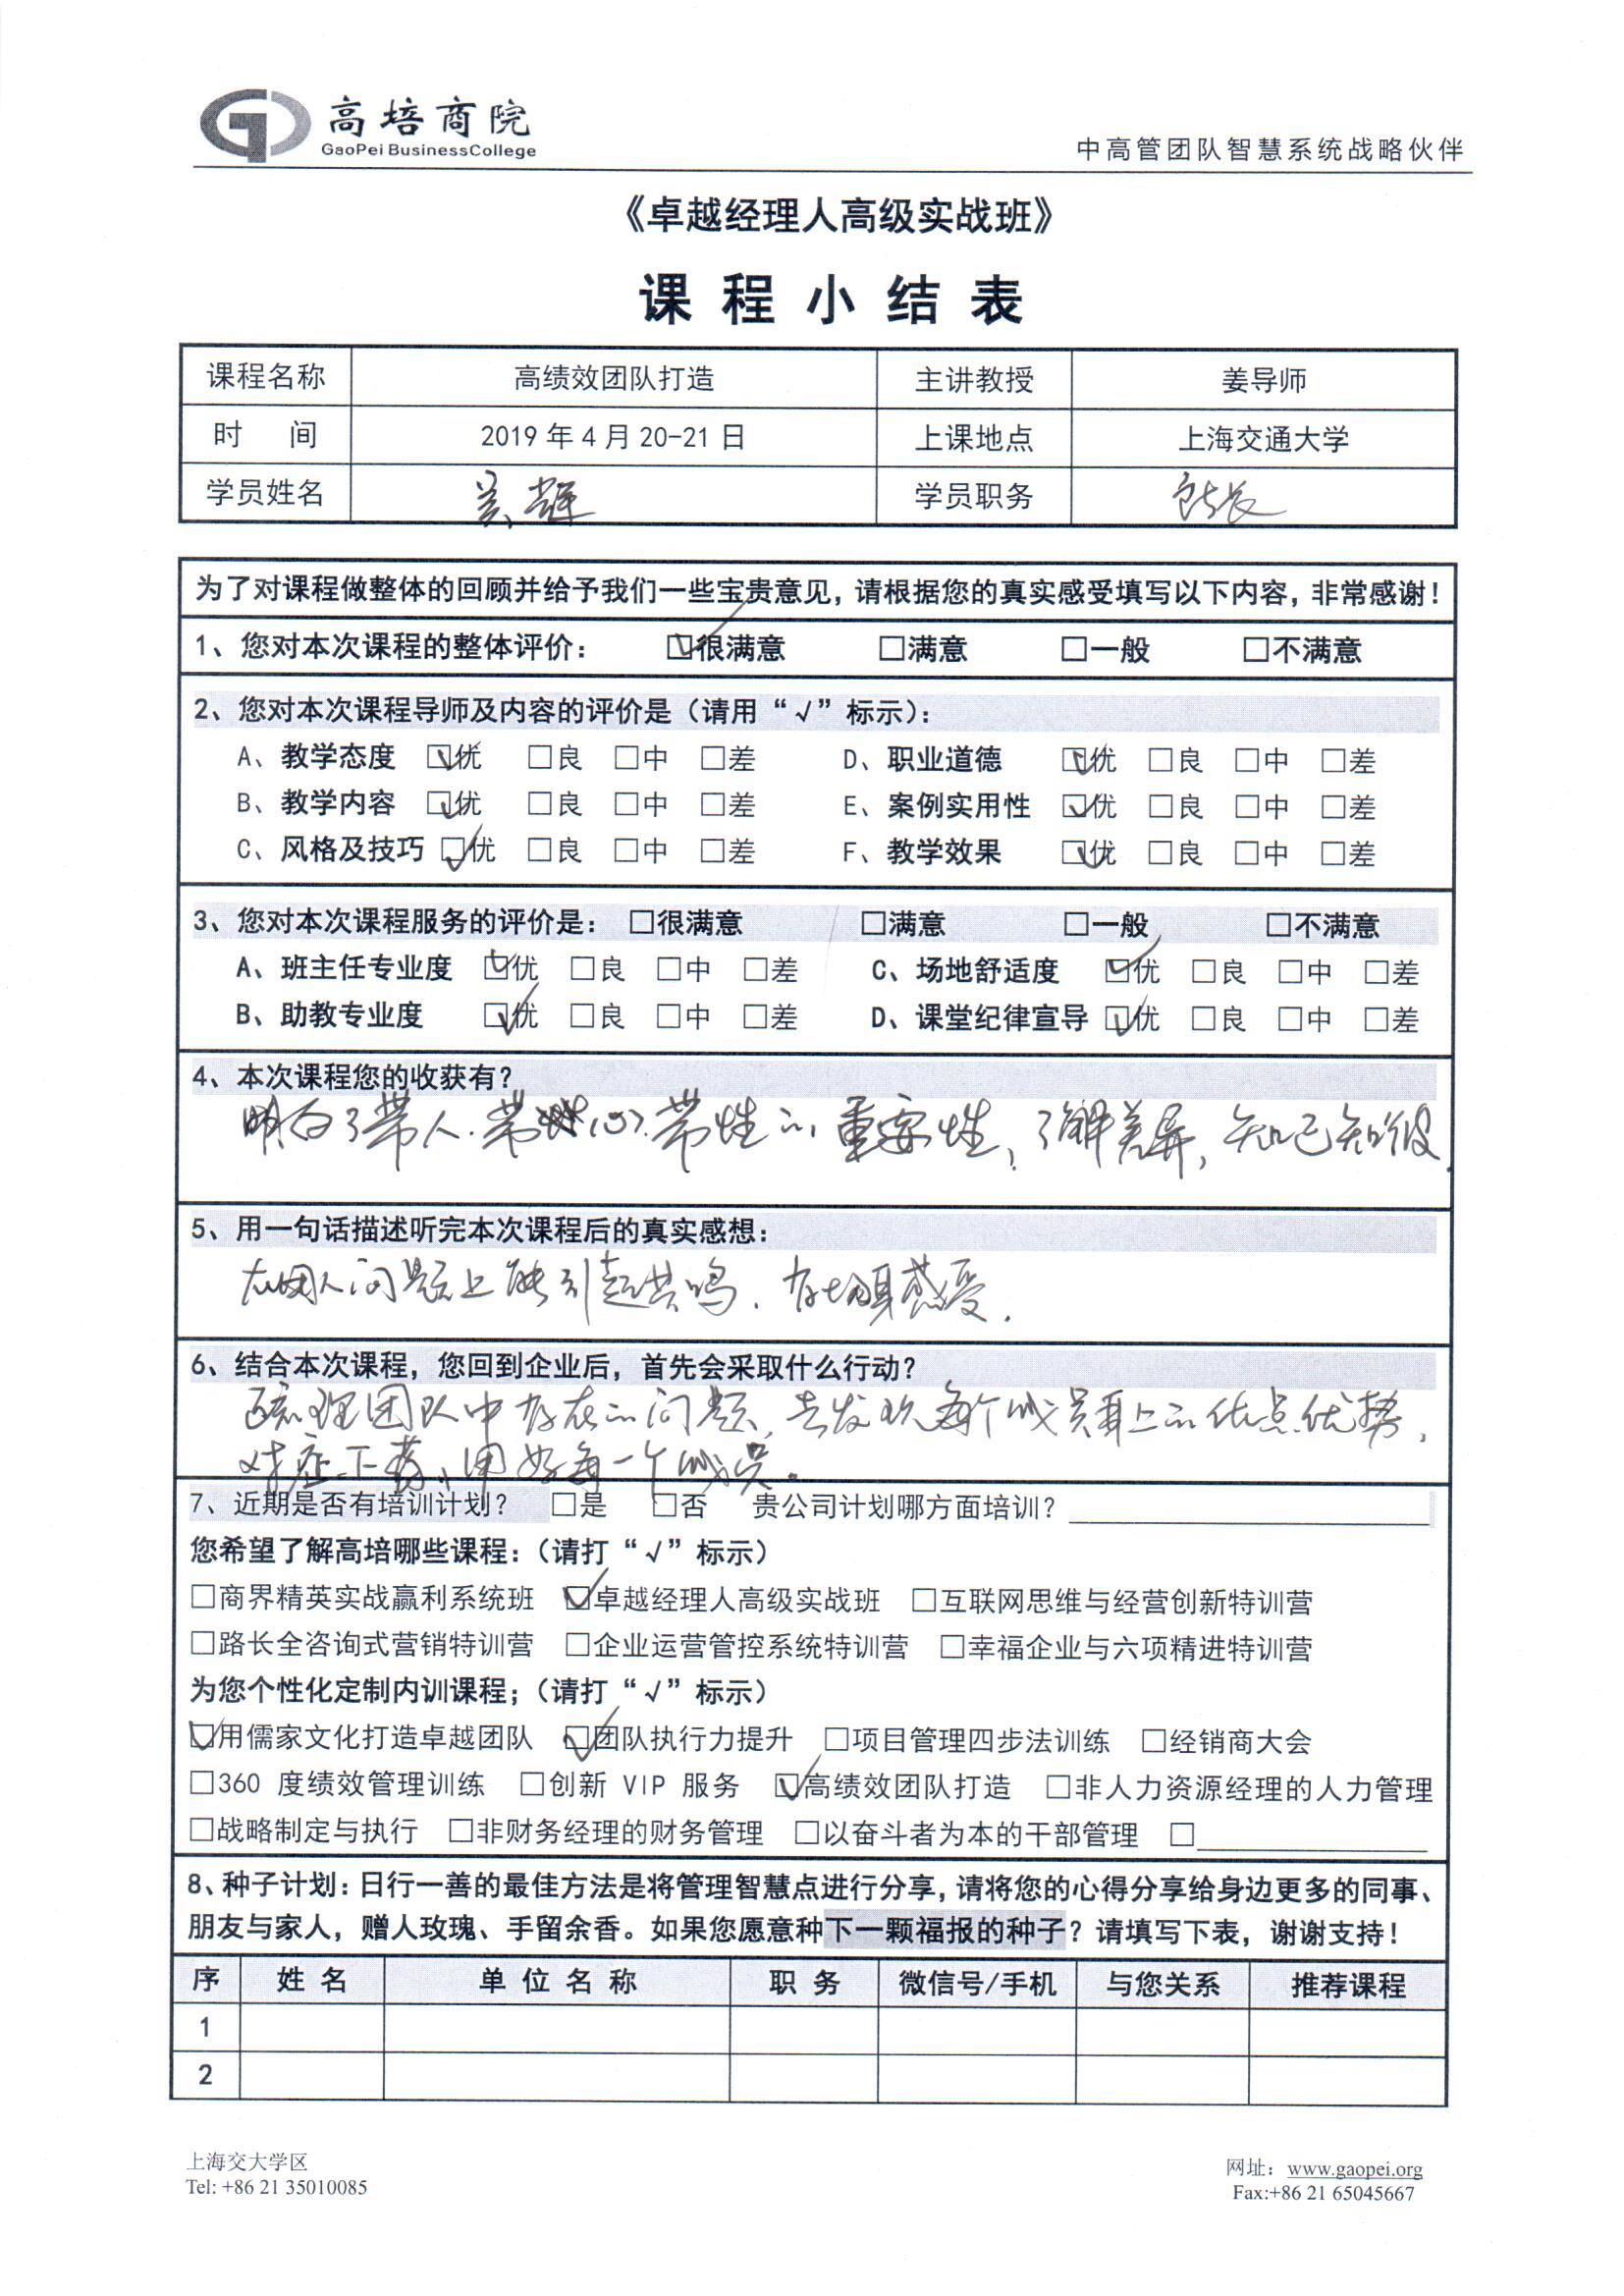 高培商院
GaoPei BusinessCollege
中高管团队智慧系统战略伙伴
《卓越经理人高级实战班》
课程小结表
课程名称 高绩效团队打造 主讲教授 姜导师
时 间 2019 年 4 月 20-21 日 上课地点 上海交通大学
学员姓名 吴辉 学员职务 站长
为了对课程做整体的回顾并给予我们一些宝贵意见，请根据您的真实感受填写以下内容，非常感谢！
1、您对本次课程的整体评价： ☑很满意 □满意 □一般 □不满意
2、您对本次课程导师及内容的评价是（请用“√”标示）：
A、教学态度 ☑优 □良 □中 □差 D、职业道德 ☑优 □良 □中 □差
B、教学内容 ☑优 □良 □中 □差 E、案例实用性 ☑优 □良 □中 □差
C、风格及技巧 ☑优 □良 □中 □差 F、教学效果 ☑优 □良 □中 □差
3、您对本次课程服务的评价是： □很满意 □满意 □一般 □不满意
A、班主任专业度 ☑优 □良 □中 □差 C、场地舒适度 ☑优 □良 □中 □差
B、助教专业度 ☑优 □良 □中 □差 D、课堂纪律宣导 ☑优 □良 □中 □差
4、本次课程您的收获有？
明白了带人.带心.带性的重要性，了解差异，知己知彼.
5、用一句话描述听完本次课程后的真实感想：
在用人问题上能引起共鸣.有切身感受.
6、结合本次课程，您回到企业后，首先会采取什么行动？
梳理团队中存在的问题，去发现每个成员身上的优点优势，
对症下药，用好每一个成员。
7、近期是否有培训计划？ □是 □否 贵公司计划哪方面培训？
您希望了解高培哪些课程：（请打“√”标示）
□商界精英实战赢利系统班 ☑卓越经理人高级实战班 □互联网思维与经营创新特训营
□路长全咨询式营销特训营 □企业运营管控系统特训营 □幸福企业与六项精进特训营
为您个性化定制内训课程；（请打“√”标示）
☑用儒家文化打造卓越团队 ☑团队执行力提升 □项目管理四步法训练 □经销商大会
□360 度绩效管理训练 □创新 VIP 服务 ☑高绩效团队打造 □非人力资源经理的人力管理
□战略制定与执行 □非财务经理的财务管理 □以奋斗者为本的干部管理 □
8、种子计划：日行一善的最佳方法是将管理智慧点进行分享，请将您的心得分享给身边更多的同事、
朋友与家人，赠人玫瑰、手留余香。如果您愿意种下一颗福报的种子？请填写下表，谢谢支持！
序 姓 名 单 位 名 称 职 务 微信号/手机 与您关系 推荐课程
1
2
上海交大学区
Tel: +86 21 35010085
网址：www.gaopei.org
Fax:+86 21 65045667